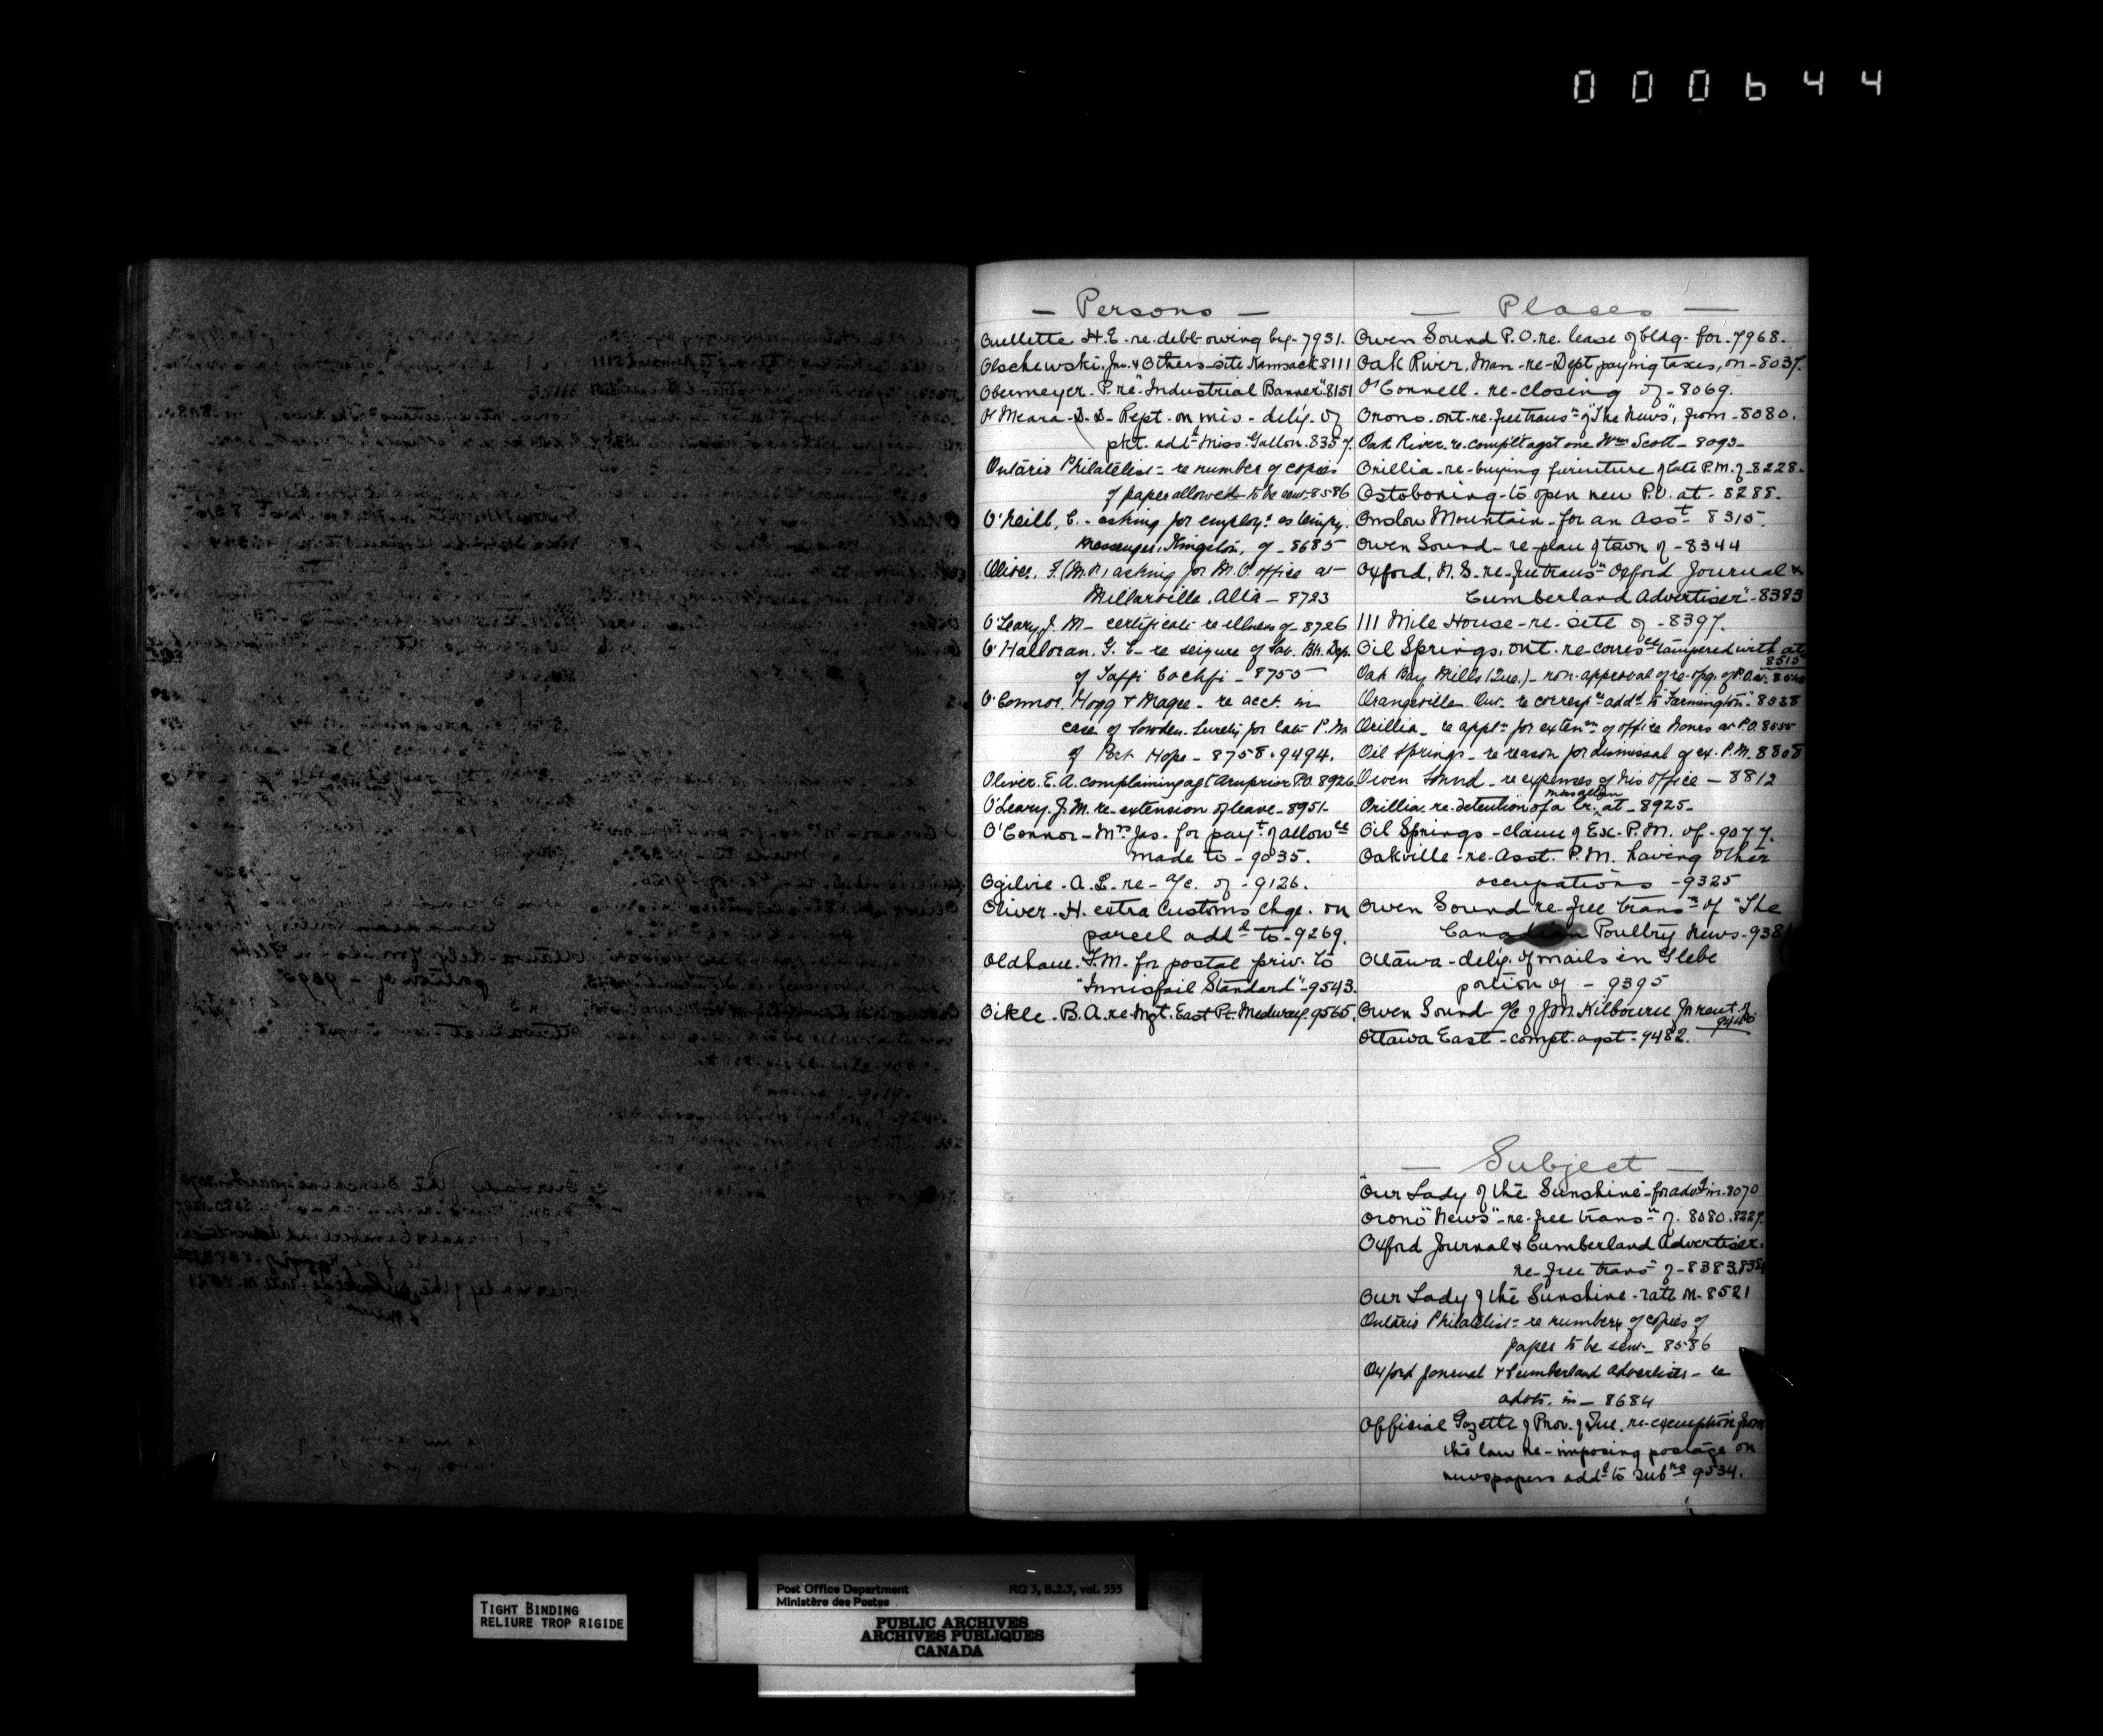 000644
— Persons —
Ouellette H.E. - re - debt owing by - 7931.
Olschewski, Jno. & Others - site Kamsack 8111
Obermeyer. P. re "Industrial Banner" 8151
O'Meara - D. D. - Rept. on mis-deliy. of
pkt. addd Miss Gallon. 8357.
Ontario Philatelist = re number of copies
of paper allowed to be sent - 8586
O'Neill, C. - asking for employt as tempy.
Messenger, Kingston, of - 8685
Oliver, F. (M.P.) asking for M.O. office at
Millarville, Alta - 8723
O'Leary J. M - certificate re illness of - 8726
O'Halloran, G. E - re seizure of Sav. Bk. Dep.
of - 8755
O'Connor, Hogg & Magee - re acct. in
case of Sowden. Surety for late P.M
of Port Hope - 8758. 9494.
Oliver. E. A. complaining agt Arnprior P.O. 8926
O'Leary. J. M. re - extension of leave - 8951.
O'Connor - Mrs Jas. for payt of allowce
made to - 9035.
Ogilvie - A. L. - re - a/c. of - 9126.
Oliver - H. extra Customs chge. on
parcel addd to - 9269.
Oldham. F.M. for postal priv. to
"Innisfail Standard" - 9543.
Oikle - B. A. re - Mgt. East Pt. Medway. 9565.
— Places —
Owen Sound P.O. re. lease of bldg. for - 7968.
Oak River, Man - re - Dept paying taxes, on - 8037.
O'Connell - re - closing of - 8069.
Orono. Ont - re - free transn of "The News", from - 8080.
Oak River. re. complt agst one Wm Scott - 8093 -
Orillia - re - buying furniture of late P.M. of - 8228.
Ostoboning - to open new P.O. at - 8288.
Onslow Mountain - for an Asst - 8315.
Owen Sound - re - plan of town of - 8344
Oxford, N.S. - re - free transn Oxford Journal &
Cumberland Advertiser" - 8383
111 Mile House - re - site of - 8397.
Oil Springs, Ont. re - corresce tampered with at
8515
Oak Bay Mills (Que.) - non-approval of re-opg. of P.O. at.
Orangeville. Ont. re correspce addd to "Farmington." 8538
Orillia - re appln for extenn of office hours at P.O. 8555
Oil Springs - re reason for dismissal of ex. P.M. 8808
Owen Sound - re expenses of his office - 8812
Orillia. re. detention of a lr. at - 8925 -
Oil Springs - claim of Ex - P.M. of - 9077.
Oakville - re - Asst. P.M. having other
occupations - 9325
Owen Sound - re - free transn of "The
Canadian Poultry News - 938
Ottawa - deliy. of mails in Glebe
portion of - 9395
Owen Sound a/c of J.M. Kilbourn for rent of
Ottawa East - compt. agst - 9482.
— Subject —
"Our Lady of the Sunshine" - for advt in - 8070
Orono "News" - re - free transn of. 8080. 8227.
Oxford Journal & Cumberland Advertiser.
re - free transn of - 8383. 8384
Our Lady of the Sunshine - rate on - 8521
Ontario Philatelist = re number of copies of
paper to be sent - 8586
Oxford Journal & Cumberland Advertiser - re
advts. in - 8684
Official Gazette of Prov. of Que. re - exemption from
the law re - imposing postage on
newspapers addd to Subrs 9534.
Post Office Department RG 3, B.2.3, vol. 555
Ministère des Postes
TIGHT BINDING
RELIURE TROP RIGIDE
PUBLIC ARCHIVES
ARCHIVES PUBLIQUES
CANADA